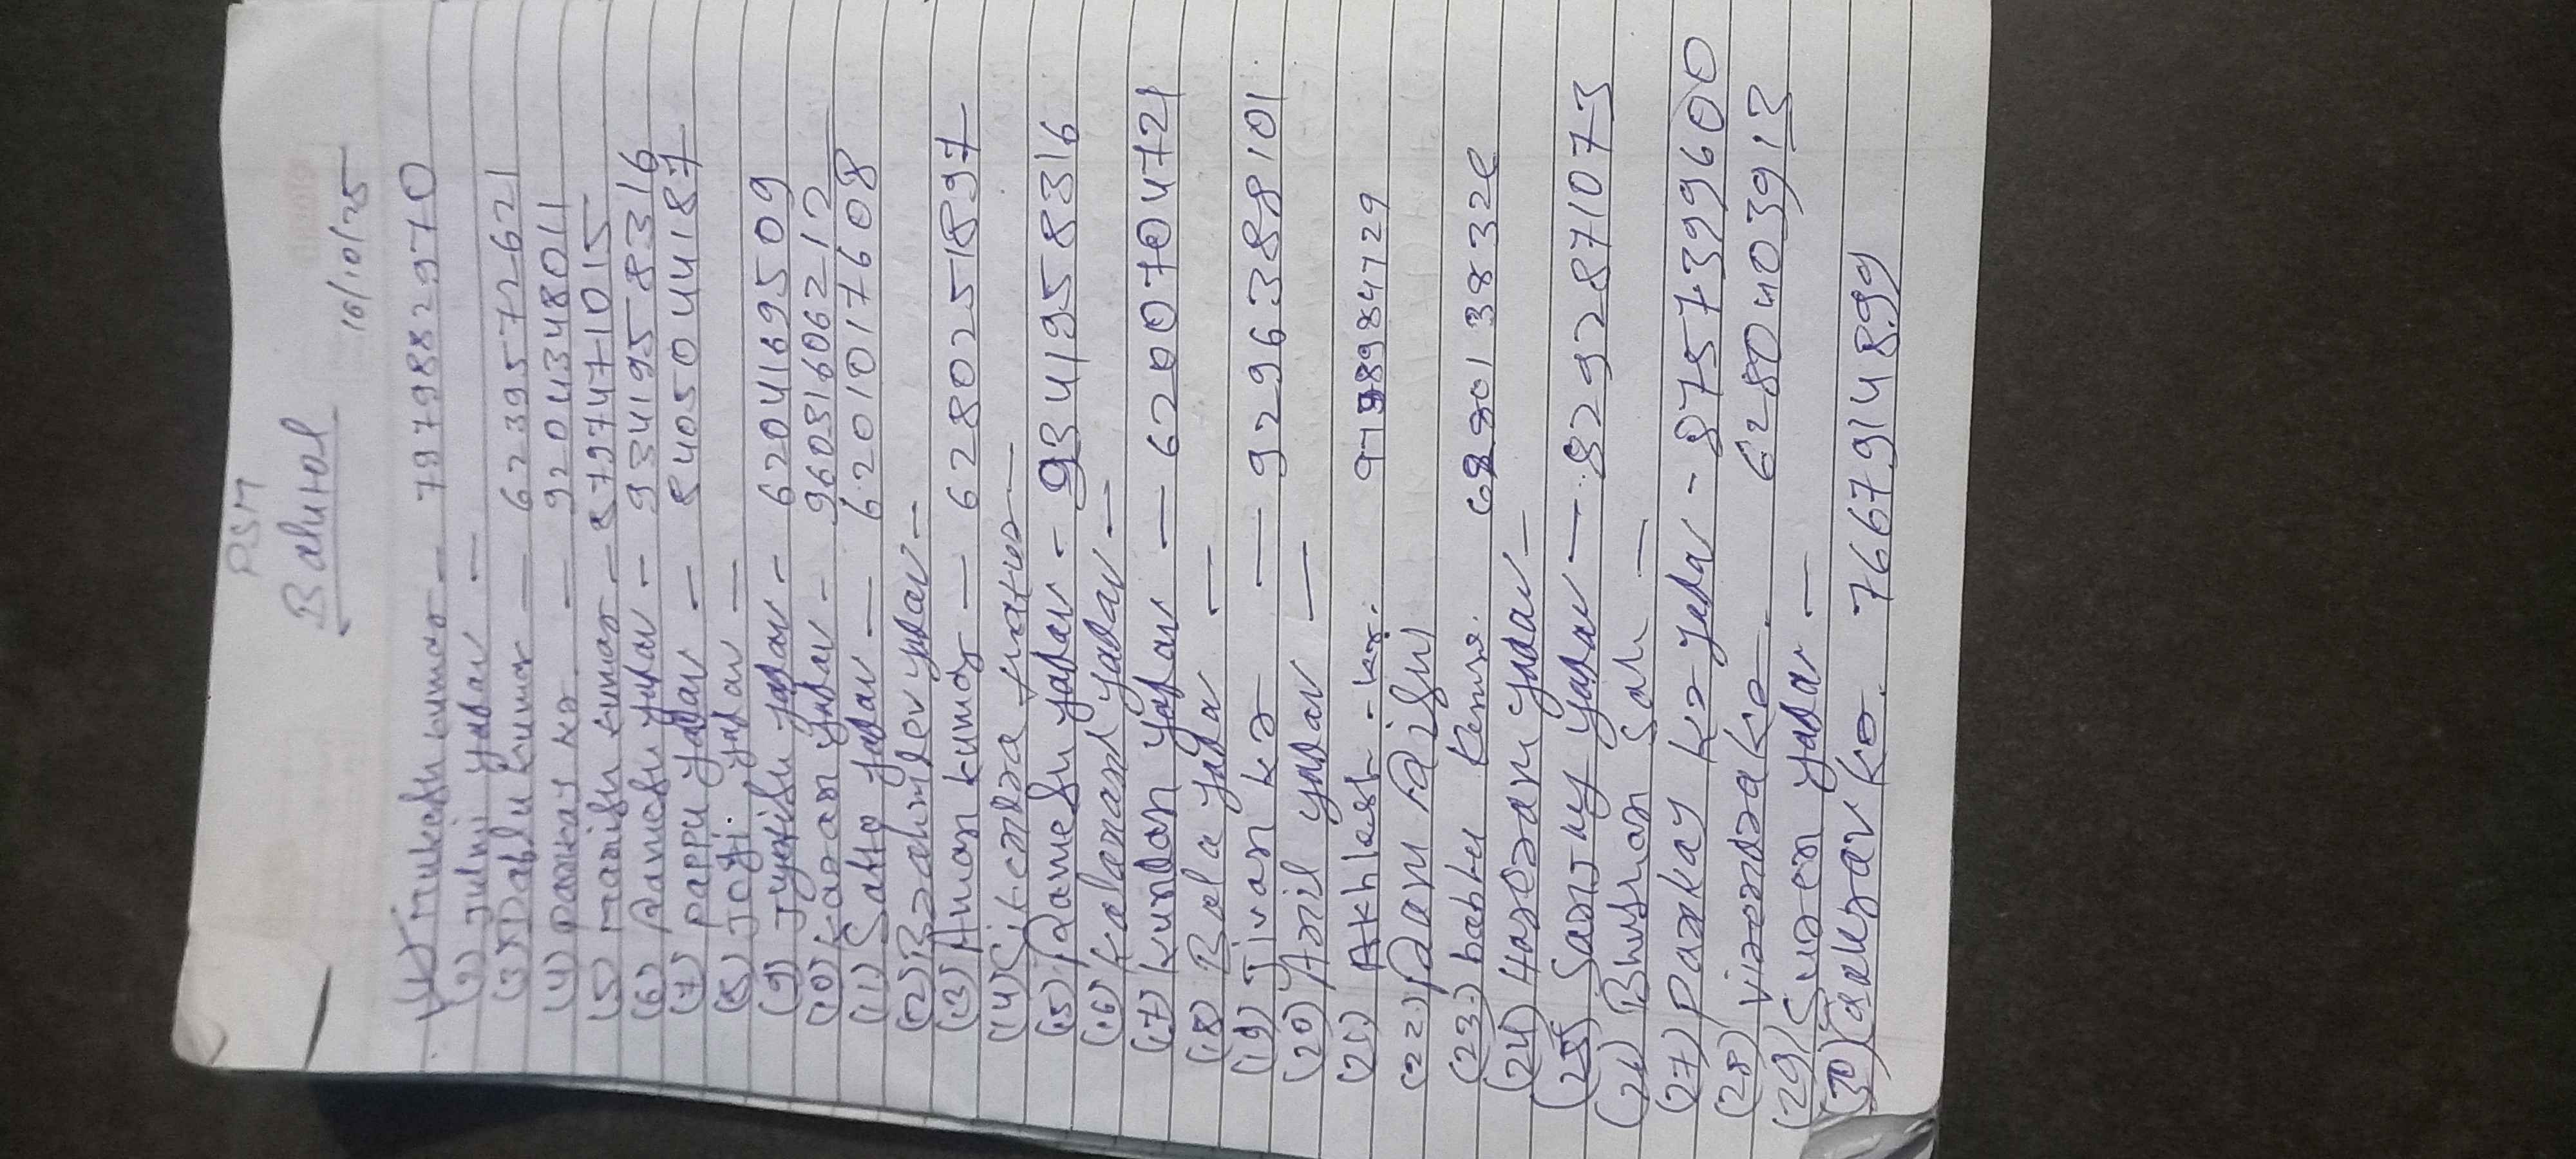 PSM
Bahural
16/10/25
(1) Mukesh kumar — 7979882970
(2) Julmi yadav —
(3) Dablu kumar — 6239572621
(4) Pankaj kr. — 9204348011
(5) Manish kumar — 8797471015
(6) Ramesh yadav - 9341958316
(7) Pappu yadav — 8405044187
(8) Jogi yadav —
(9) Jyotish yadav - 6204169509
(10) Karan yadav - 96031606212
(11) Satto yadav — 6201017608
(12) Brahmdev yadav -
(13) Aman kumar — 6280251897
(14)
(15) Ramesh yadav - 9341958316
(16) Kalanand yadav -
(17) Kundan yadav — 6200704721
(18) Bala yadav —
(19) Jivan kr — 9296388101
(20) Anil yadav —
(21) Akhlesh - kr. 9798984729
(22) Ram Rishi
(23) bablu
(24) Hareram yadav -
(25) Sanjay yadav — 8292871073
(26) Bhushan Sah —
(27) Pankaj kr yadav - 8757399600
(28) virendra kr. 6280403913
(29) Suren yadav —
(30) kr. 7667914899